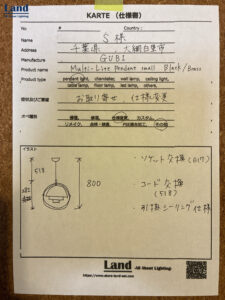 Land
KARTE（仕様書）
No.
Country :
Name S 様
Address 千葉県 大網白里市
Manufacture GUBI
Product name Multi-Lite Pendent small Black/Brass
Product type pendant light, chandelier, wall lamp, ceiling light,
table lamp, floor lamp, led lamp, others,
お取り寄せ 仕様変更
修理, 仕様変更, カスタム,
リメイク, その他
イラスト
ソケット交換 (E17)
518
800
コード交換
(518)
引掛シーリング仕様
Land All About Lighting